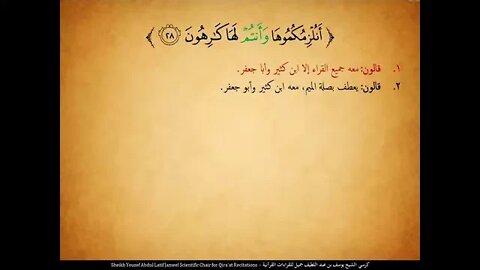 ﴿ أَنُلْزِمُكُمُوهَا وَأَنتُمْ لَهَا كَٰرِهُونَ ٢٨ ﴾
١. قالون: معه جميع القراء إلا ابن كثير وأبا جعفر.
٢. قالون: يعطف بصلة الميم، معه ابن كثير وأبو جعفر.
Sheikh Yousef Abdul Latif Jameel Scientific Chair for Qira'at Recitations - كرسي الشيخ يوسف بن عبد اللطيف جميل للقراءات القرآنية